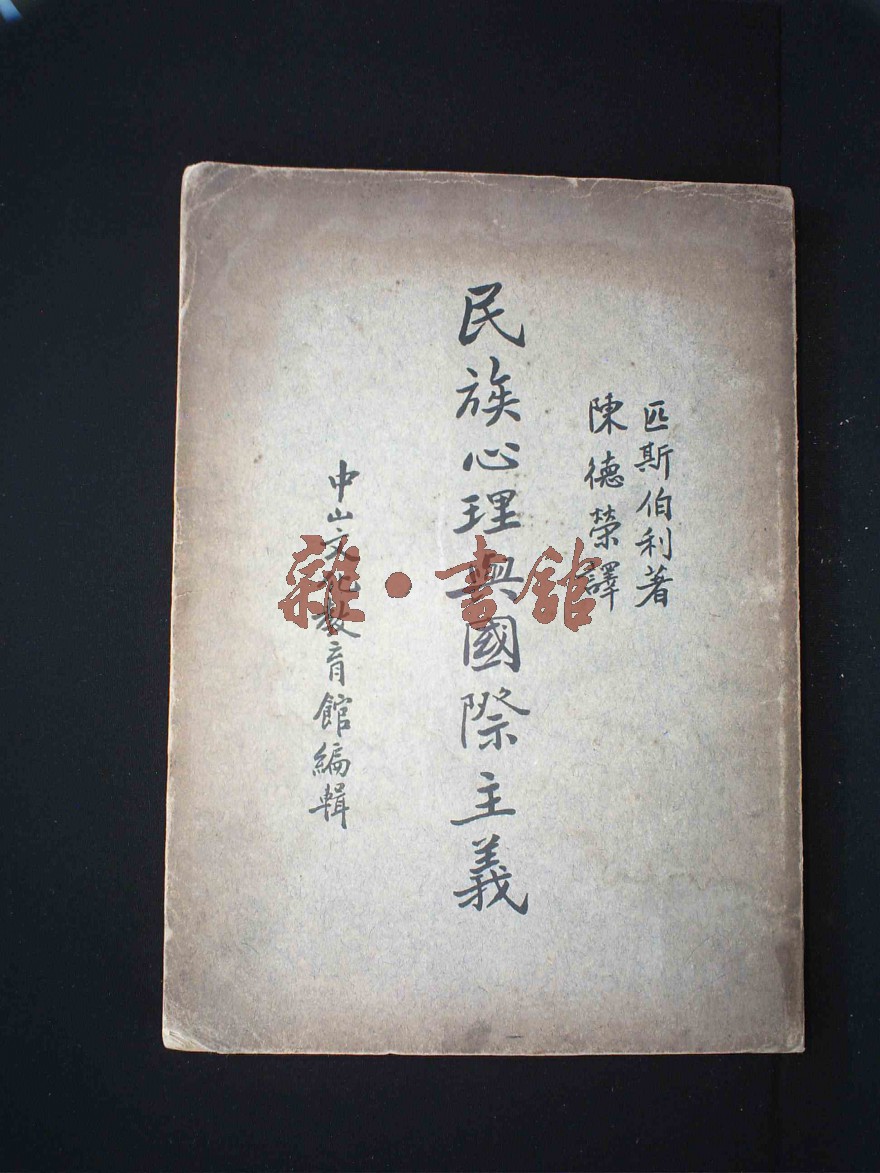 匹斯伯利著
陳德榮譯
民族心理與國際主義
中山文化教育館編輯
雜·書館